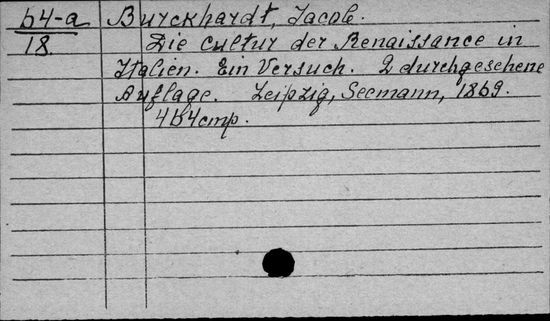 б4-а Burckhardt, Jacob.
18. Die Cultur der Renaissance in
Italien. Ein Versuch. 2 durchgesehene
Auflage. Leipzig, Seemann, 1869.
464 стр.